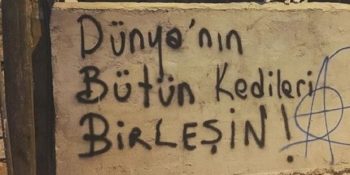 Dünya'nın
Bütün Kedileri
BİRLEŞİN!